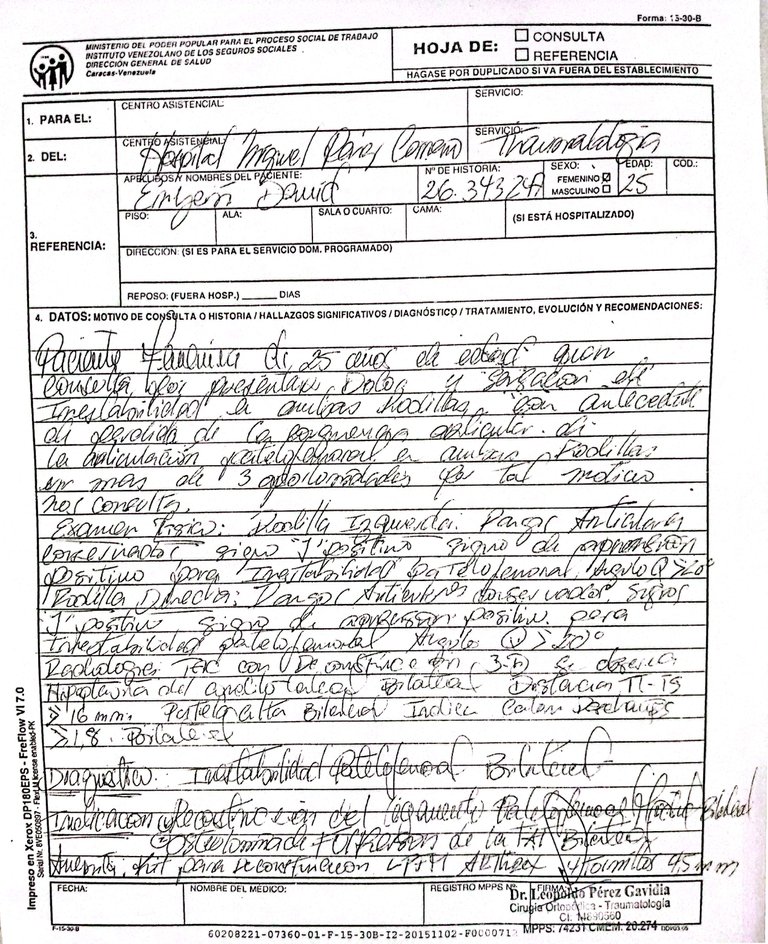 Forma: 15-30-B
MINISTERIO DEL PODER POPULAR PARA EL PROCESO SOCIAL DE TRABAJO
INSTITUTO VENEZOLANO DE LOS SEGUROS SOCIALES
DIRECCIÓN GENERAL DE SALUD
Caracas-Venezuela
HOJA DE:
CONSULTA
REFERENCIA
HAGASE POR DUPLICADO SI VA FUERA DEL ESTABLECIMIENTO
1. PARA EL:
CENTRO ASISTENCIAL:
SERVICIO:
2. DEL:
CENTRO ASISTENCIAL:
Hospital Miguel Pérez Carreño
SERVICIO:
Traumatología
3. REFERENCIA:
APELLIDOS Y NOMBRES DEL PACIENTE:
David
Nº DE HISTORIA:
SEXO:
FEMENINO
MASCULINO
EDAD:
25
COD.:
PISO:
ALA:
SALA O CUARTO:
CAMA:
(SI ESTÁ HOSPITALIZADO)
DIRECCIÓN: (SI ES PARA EL SERVICIO DOM. PROGRAMADO)
REPOSO: (FUERA HOSP.) ______ DIAS
4. DATOS: MOTIVO DE CONSULTA O HISTORIA / HALLAZGOS SIGNIFICATIVOS / DIAGNÓSTICO / TRATAMIENTO, EVOLUCIÓN Y RECOMENDACIONES:
Paciente Femenina de 25 años de edad quien
consulta por presentar Dolor y sensacion de
Inestabilidad en ambas Rodillas, con antecedente
de perdida de la congruencia articular de
la articulación patelofemoral en ambas Rodillas
en mas de 3 oportunidades por tal motivo
nos consulta.
Examen Fisico: Rodilla Izquierda: Rangos Articulares
conservados signo "J" positivo signo de aprension
positivo para Inestabilidad patelofemoral, Angulo Q > 20°
Rodilla Derecha: Rangos Articulares conservados, signo
"J" positivo signo de aprension positivo para
Inestabilidad patelofemoral Angulo Q > 20°
Radiologia: TAC con Reconstruccion 3-D se observa
Hipoplasia del Bilateral Distancia TT-TG
> 16 mm. Patela alta Bilateral Indice Caton Deschamps
Diagnostico: Inestabilidad Patelofemoral Bilateral
Indicacion: Reconstruccion del ligamento Patelofemoral Medial Bilateral
de la TAT Bilateral
Kit para reconstruccion LPFM Arthrex 4 Tornillos 4,5 mm
FECHA:
NOMBRE DEL MÉDICO:
REGISTRO MPPS Nº
FIRMA
Dr. Leopoldo Pérez Gavidia
Cirugía Ortopédica - Traumatología
MPPS: 74231 CMEM: 20.274
F-15-30-B
60208221-07360-01-F-15-30B-I2-20151102-F0000712
Impreso en Xerox DP180EPS - FreFlow VI 7.0